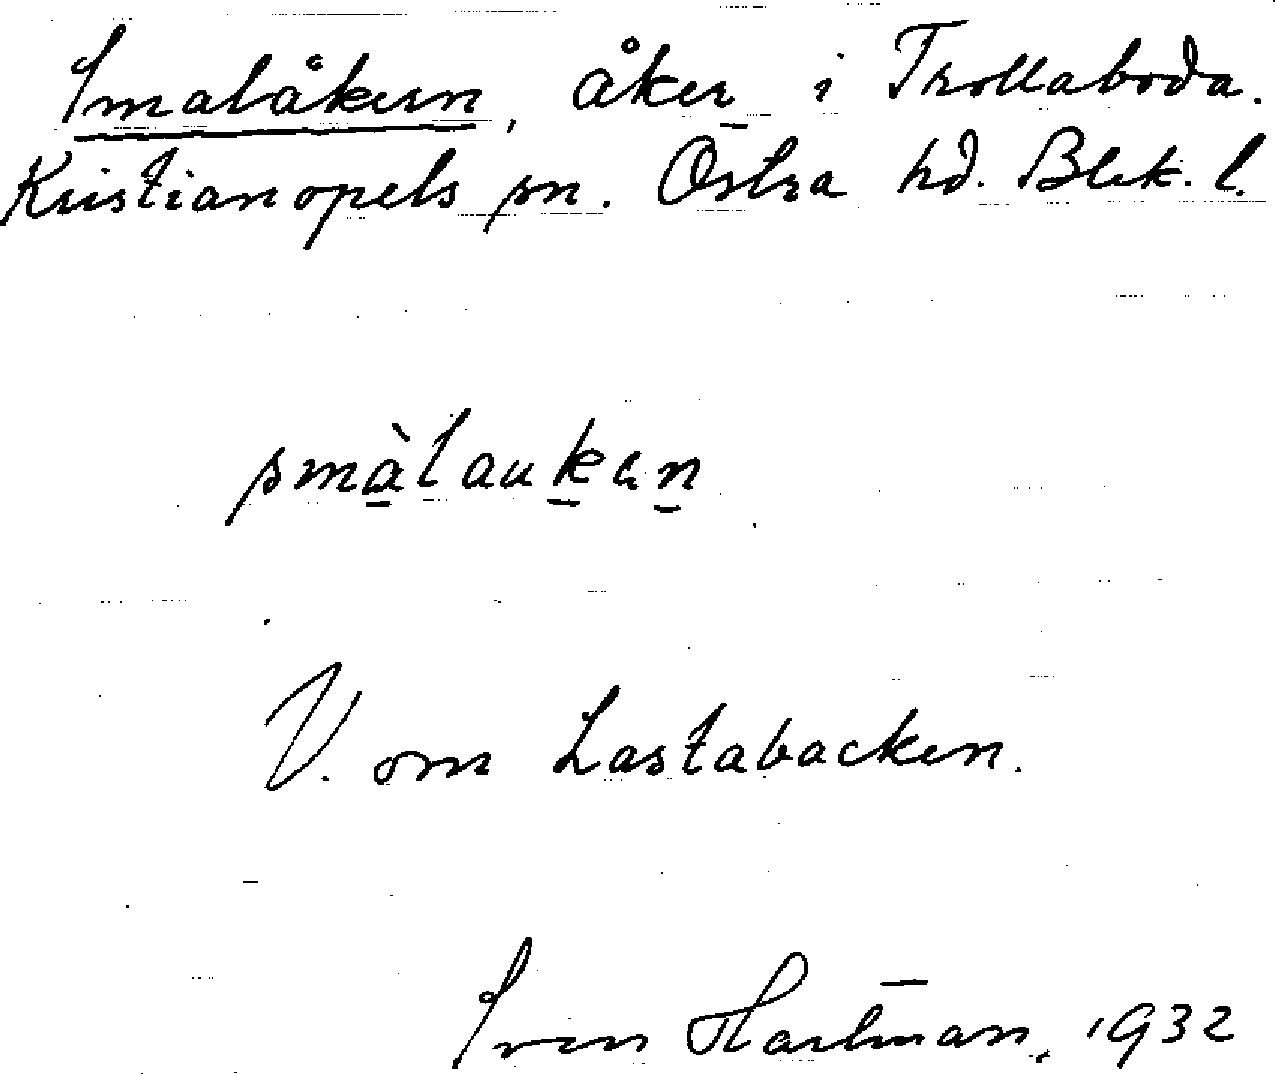 Smalåkern, åker i Trollaboda.
Kristianopels sn. Östra hd. Blek. l.
smàlaukan
V. om Lastabacken.
Sven Hartman, 1932